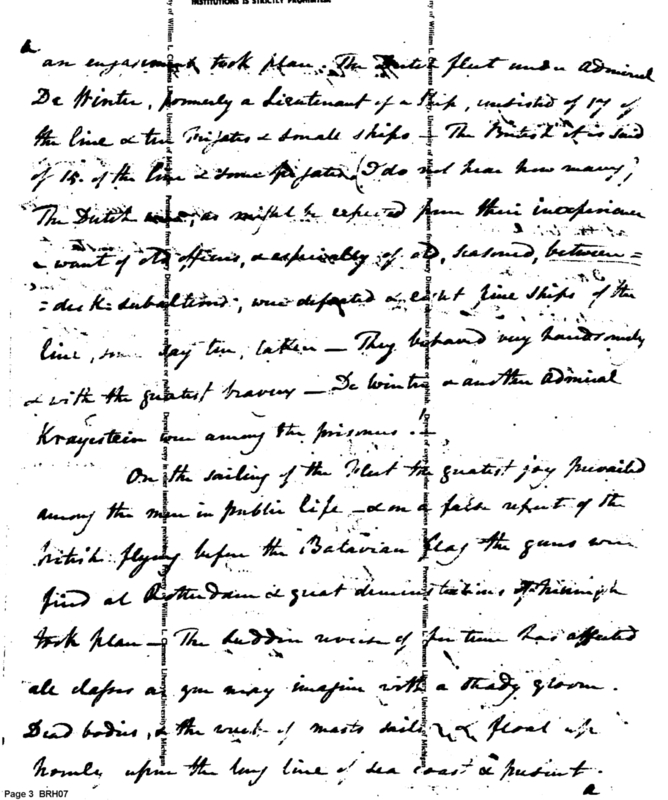 INSTITUTIONS IS STRICTLY PROHIBITED
a
an engagement took place. The Dutch fleet under Admiral
De Winter, formerly a Lieutenant of a Ship, consisted of 17 of
the line & ten Frigates & small ships — The British it is said
of 15. of the line & some frigates (I do not hear how many)
The Dutch as might be expected from their inexperience
& want of old officers, & especially of old, seasoned, between=
=deck subalterns, were defeated & eight fine ships of the
line, some say ten, taken — They behaved very handsomely
& with the greatest bravery — De Winter & another Admiral
were among the prisoners. —
On the sailing of the fleet the greatest joy prevailed
among the men in public life — & on a false report of the
British flying before the Batavian flag the guns were
fired at Rotterdam & great demonstrations of triumph
took place — The sudden reverse of fortune has affected
all classes as you may imagine with a steady gloom.
Dead bodies, & the wreck of masts sails & float up
hourly upon the long line of sea coast at present.
a
Property of William L. Clements Library, University of Michigan.
Page 3 BRH07